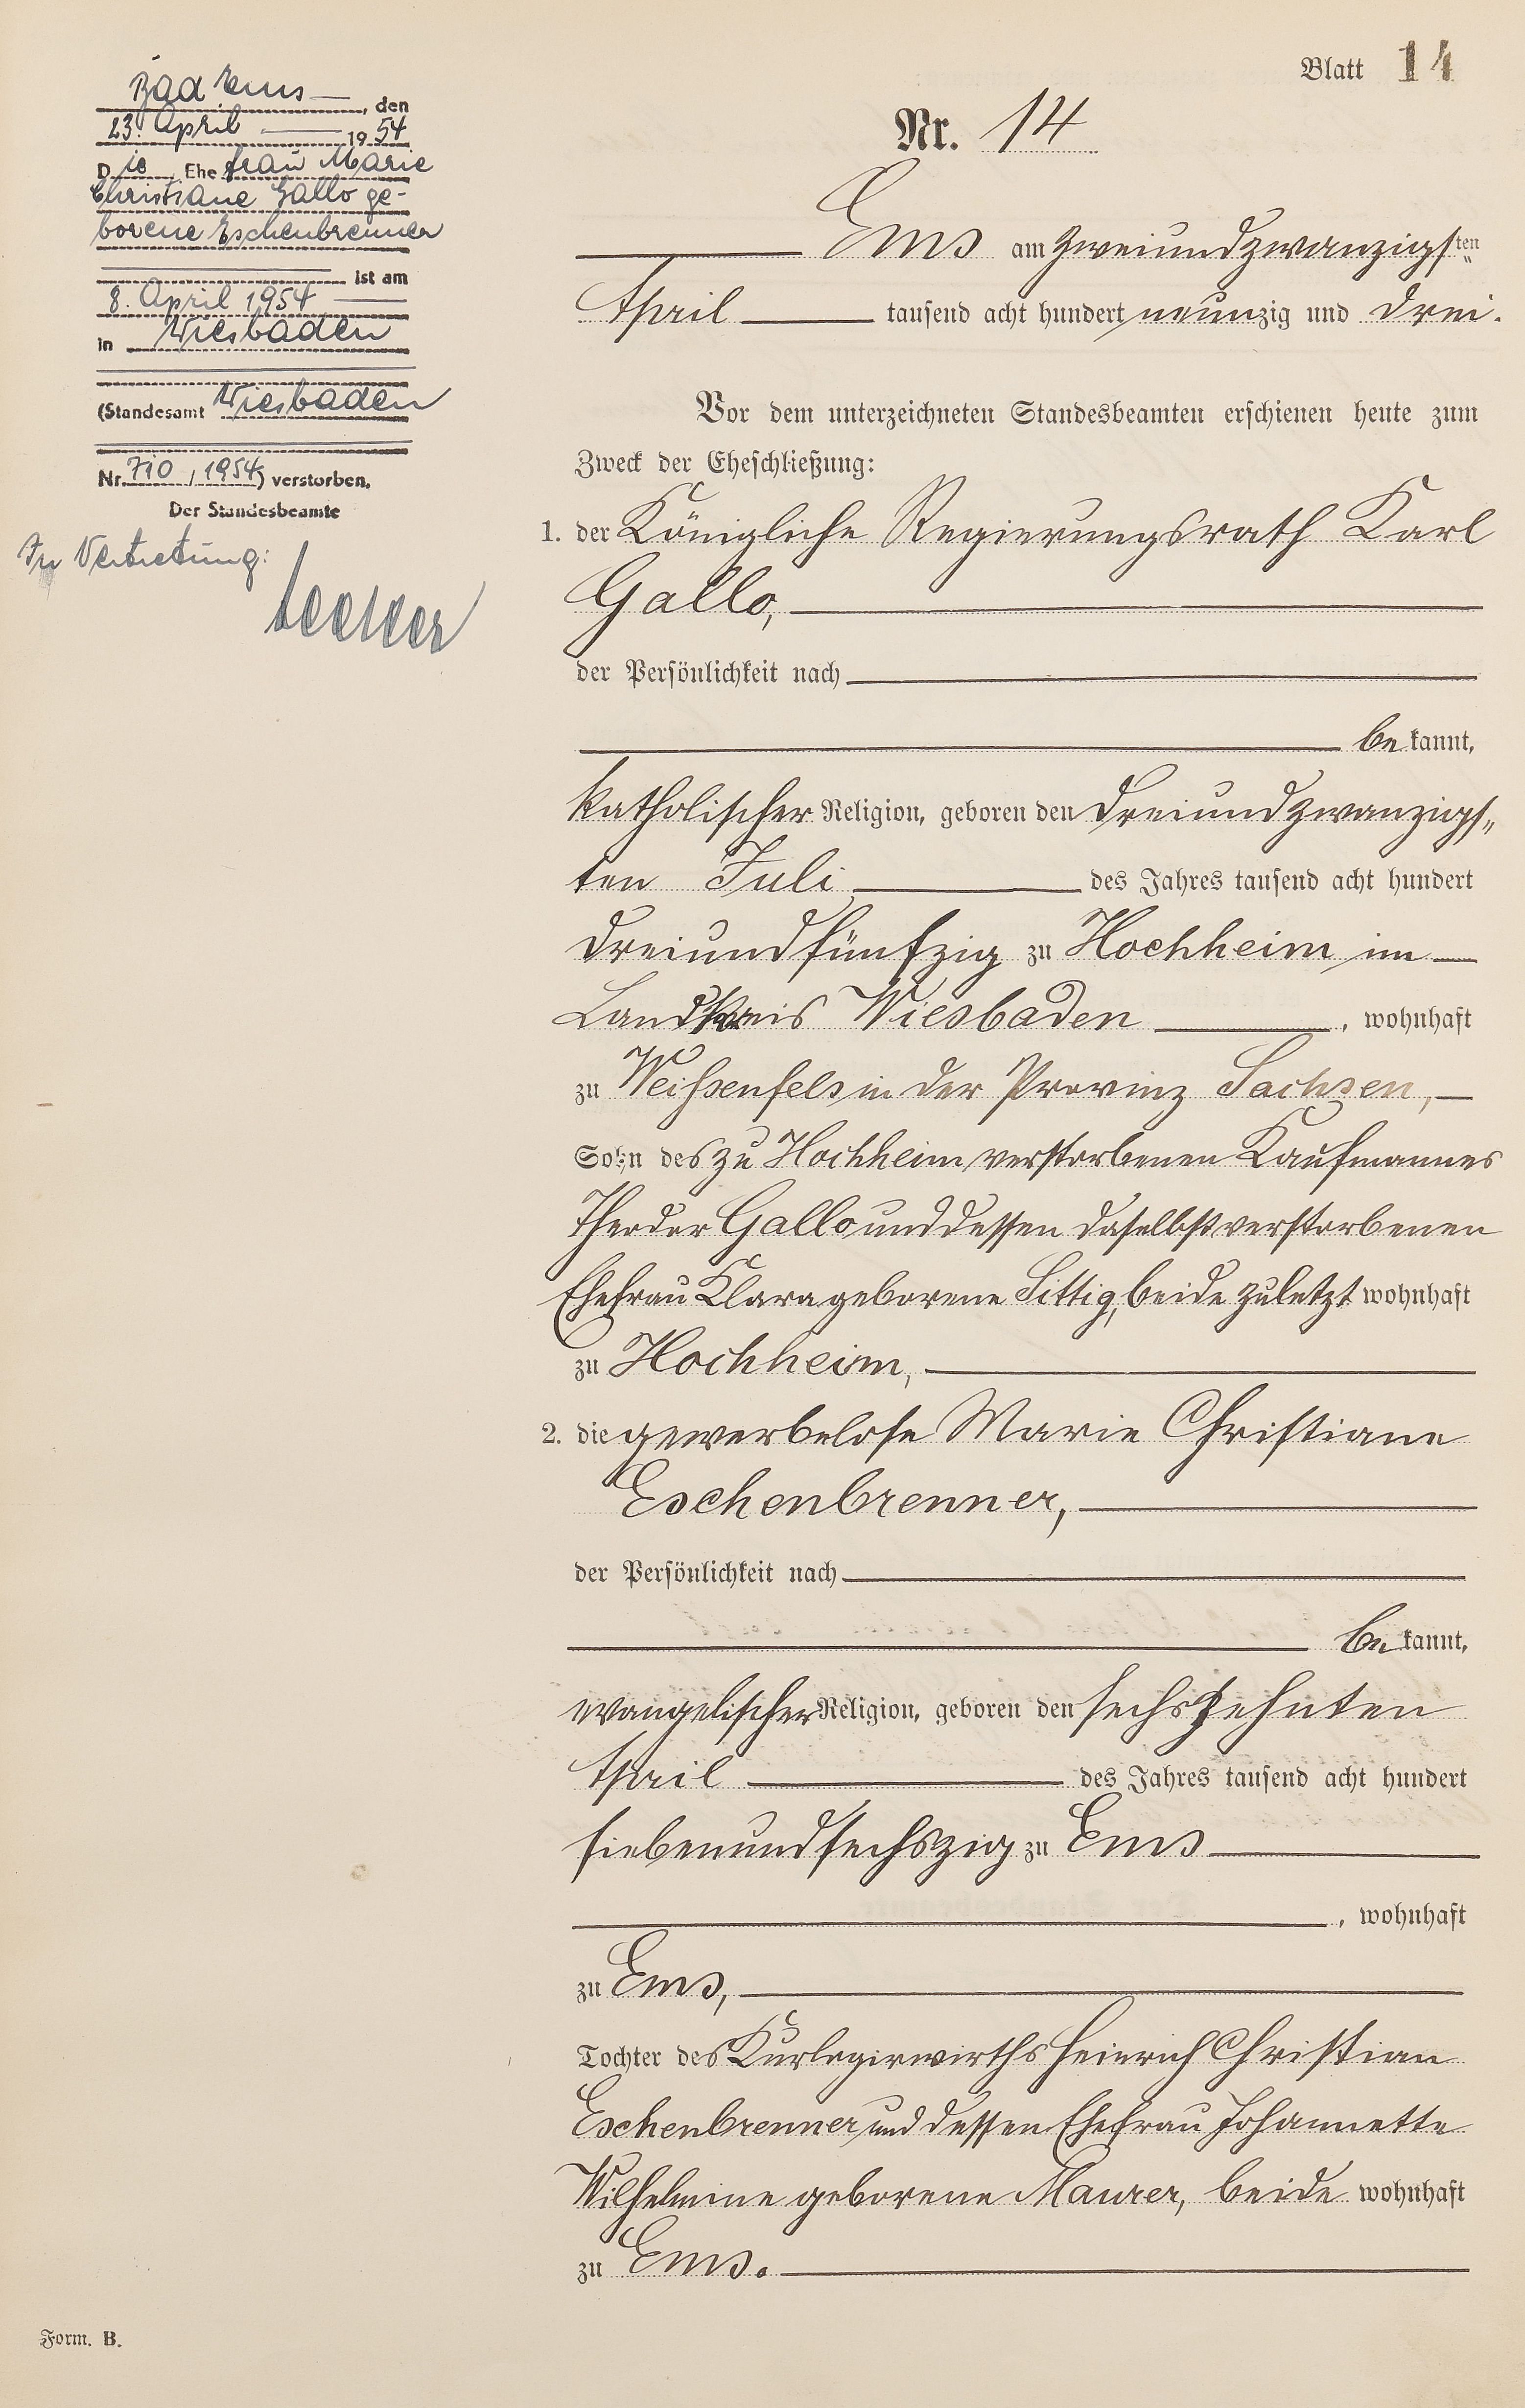 Blatt 14
Nr. 14
Ems am zweiundzwanzigsten
April tausend acht hundert neunzig und drei.
Vor dem unterzeichneten Standesbeamten erschienen heute zum
Zweck der Eheschließung:
1. der Königliche Regierungsrath Karl
Gallo,
der Persönlichkeit nach
bekannt,
katholischer Religion, geboren den dreiundzwanzigs„
ten Juli des Jahres tausend acht hundert
dreiundfünfzig zu Hochheim im
Landkreis Wiesbaden, wohnhaft
zu Weißenfels in der Provinz Sachsen,
Sohn des zu Hochheim verstorbenen Kaufmannes
Theodor Gallo und dessen daselbst verstorbenen
Ehefrau Klara geborene Sittig, beide zuletzt wohnhaft
zu Hochheim,
2. die gewerbelose Marie Christiane
Eschenbrenner,
der Persönlichkeit nach
bekannt,
evangelischer Religion, geboren den sechszehnten
April des Jahres tausend acht hundert
siebenundsechszig zu Ems
, wohnhaft
zu Ems,
Tochter des Kurlogirwirths Heinrich Christian
Eschenbrenner und dessen Ehefrau Johannette
Wilhelmine geborene Maurer, beide wohnhaft
zu Ems.
Bad Ems, den
23. April 1954
Die Ehefrau Marie
Christiane Gallo ge-
borene Eschenbrenner
ist am
8. April 1954
in Wiesbaden
(Standesamt Wiesbaden
Nr. 710/1954) verstorben.
Der Standesbeamte
In Vertretung:
Form. B.